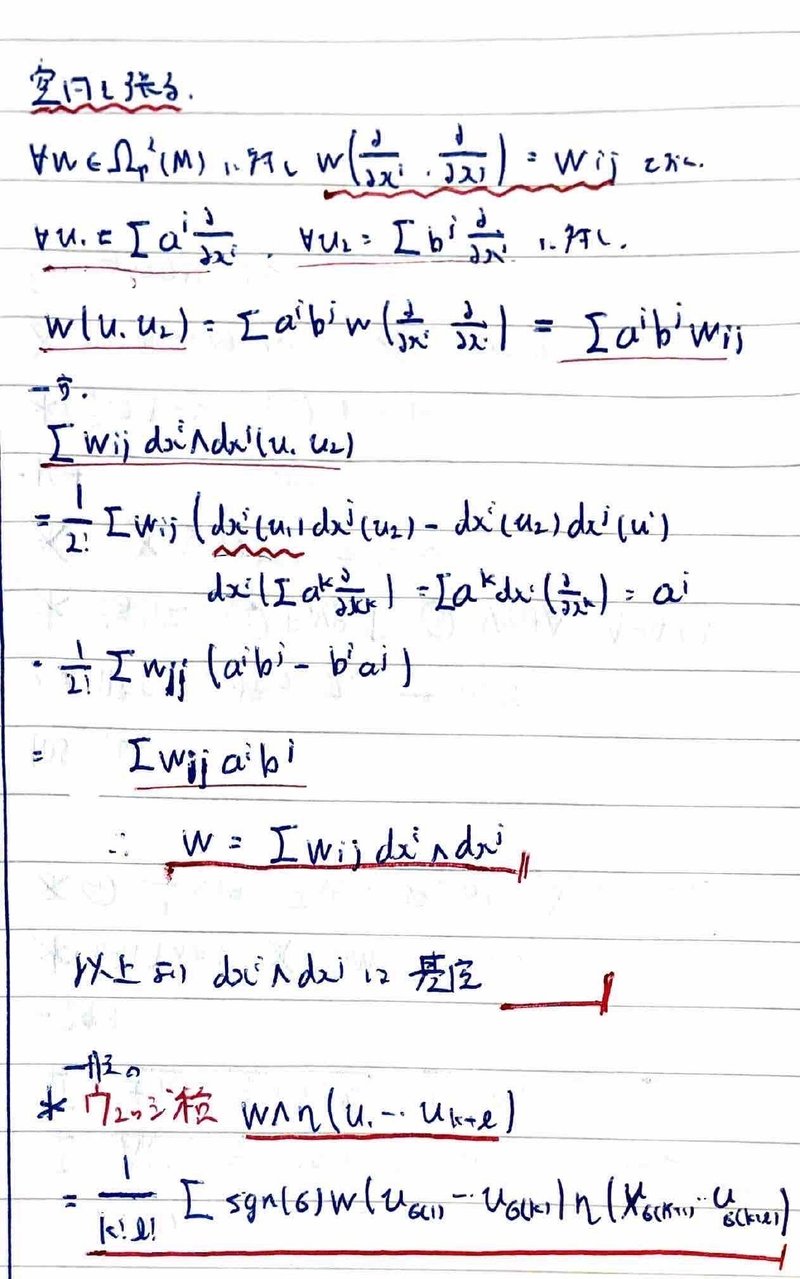 空間を張る.
∀w ∈ Ωp²(M) に対し w(∂/∂xⁱ, ∂/∂xʲ) = wij とおく.
∀u₁ = Σ aⁱ ∂/∂xⁱ, ∀u₂ = Σ bʲ ∂/∂xⁱ に対し,
w(u₁ u₂) = Σ aⁱbʲ w(∂/∂xⁱ ∂/∂xʲ) = Σ aⁱbʲ wij
一方.
Σ wij dxⁱ∧dxʲ(u₁ u₂)
= 1/2! Σ wij (dxⁱ(u₁)dxʲ(u₂) - dxⁱ(u₂)dxʲ(u₁)
dxⁱ(Σ aᵏ ∂/∂xᵏ) = Σ aᵏ dxⁱ(∂/∂xᵏ) = aⁱ
= 1/2! Σ wij (aⁱbʲ - bⁱaʲ)
= Σ wij aⁱbʲ
∴ w = Σ wij dxⁱ∧dxʲ
以上より dxⁱ∧dxʲ は 基底
一般の
* ウェッジ積 w∧η(u₁ … uk+l)
= 1/k!l! Σ sgn(σ) w(uσ(1) … uσ(k)) η(uσ(k+1) … uσ(k+l))